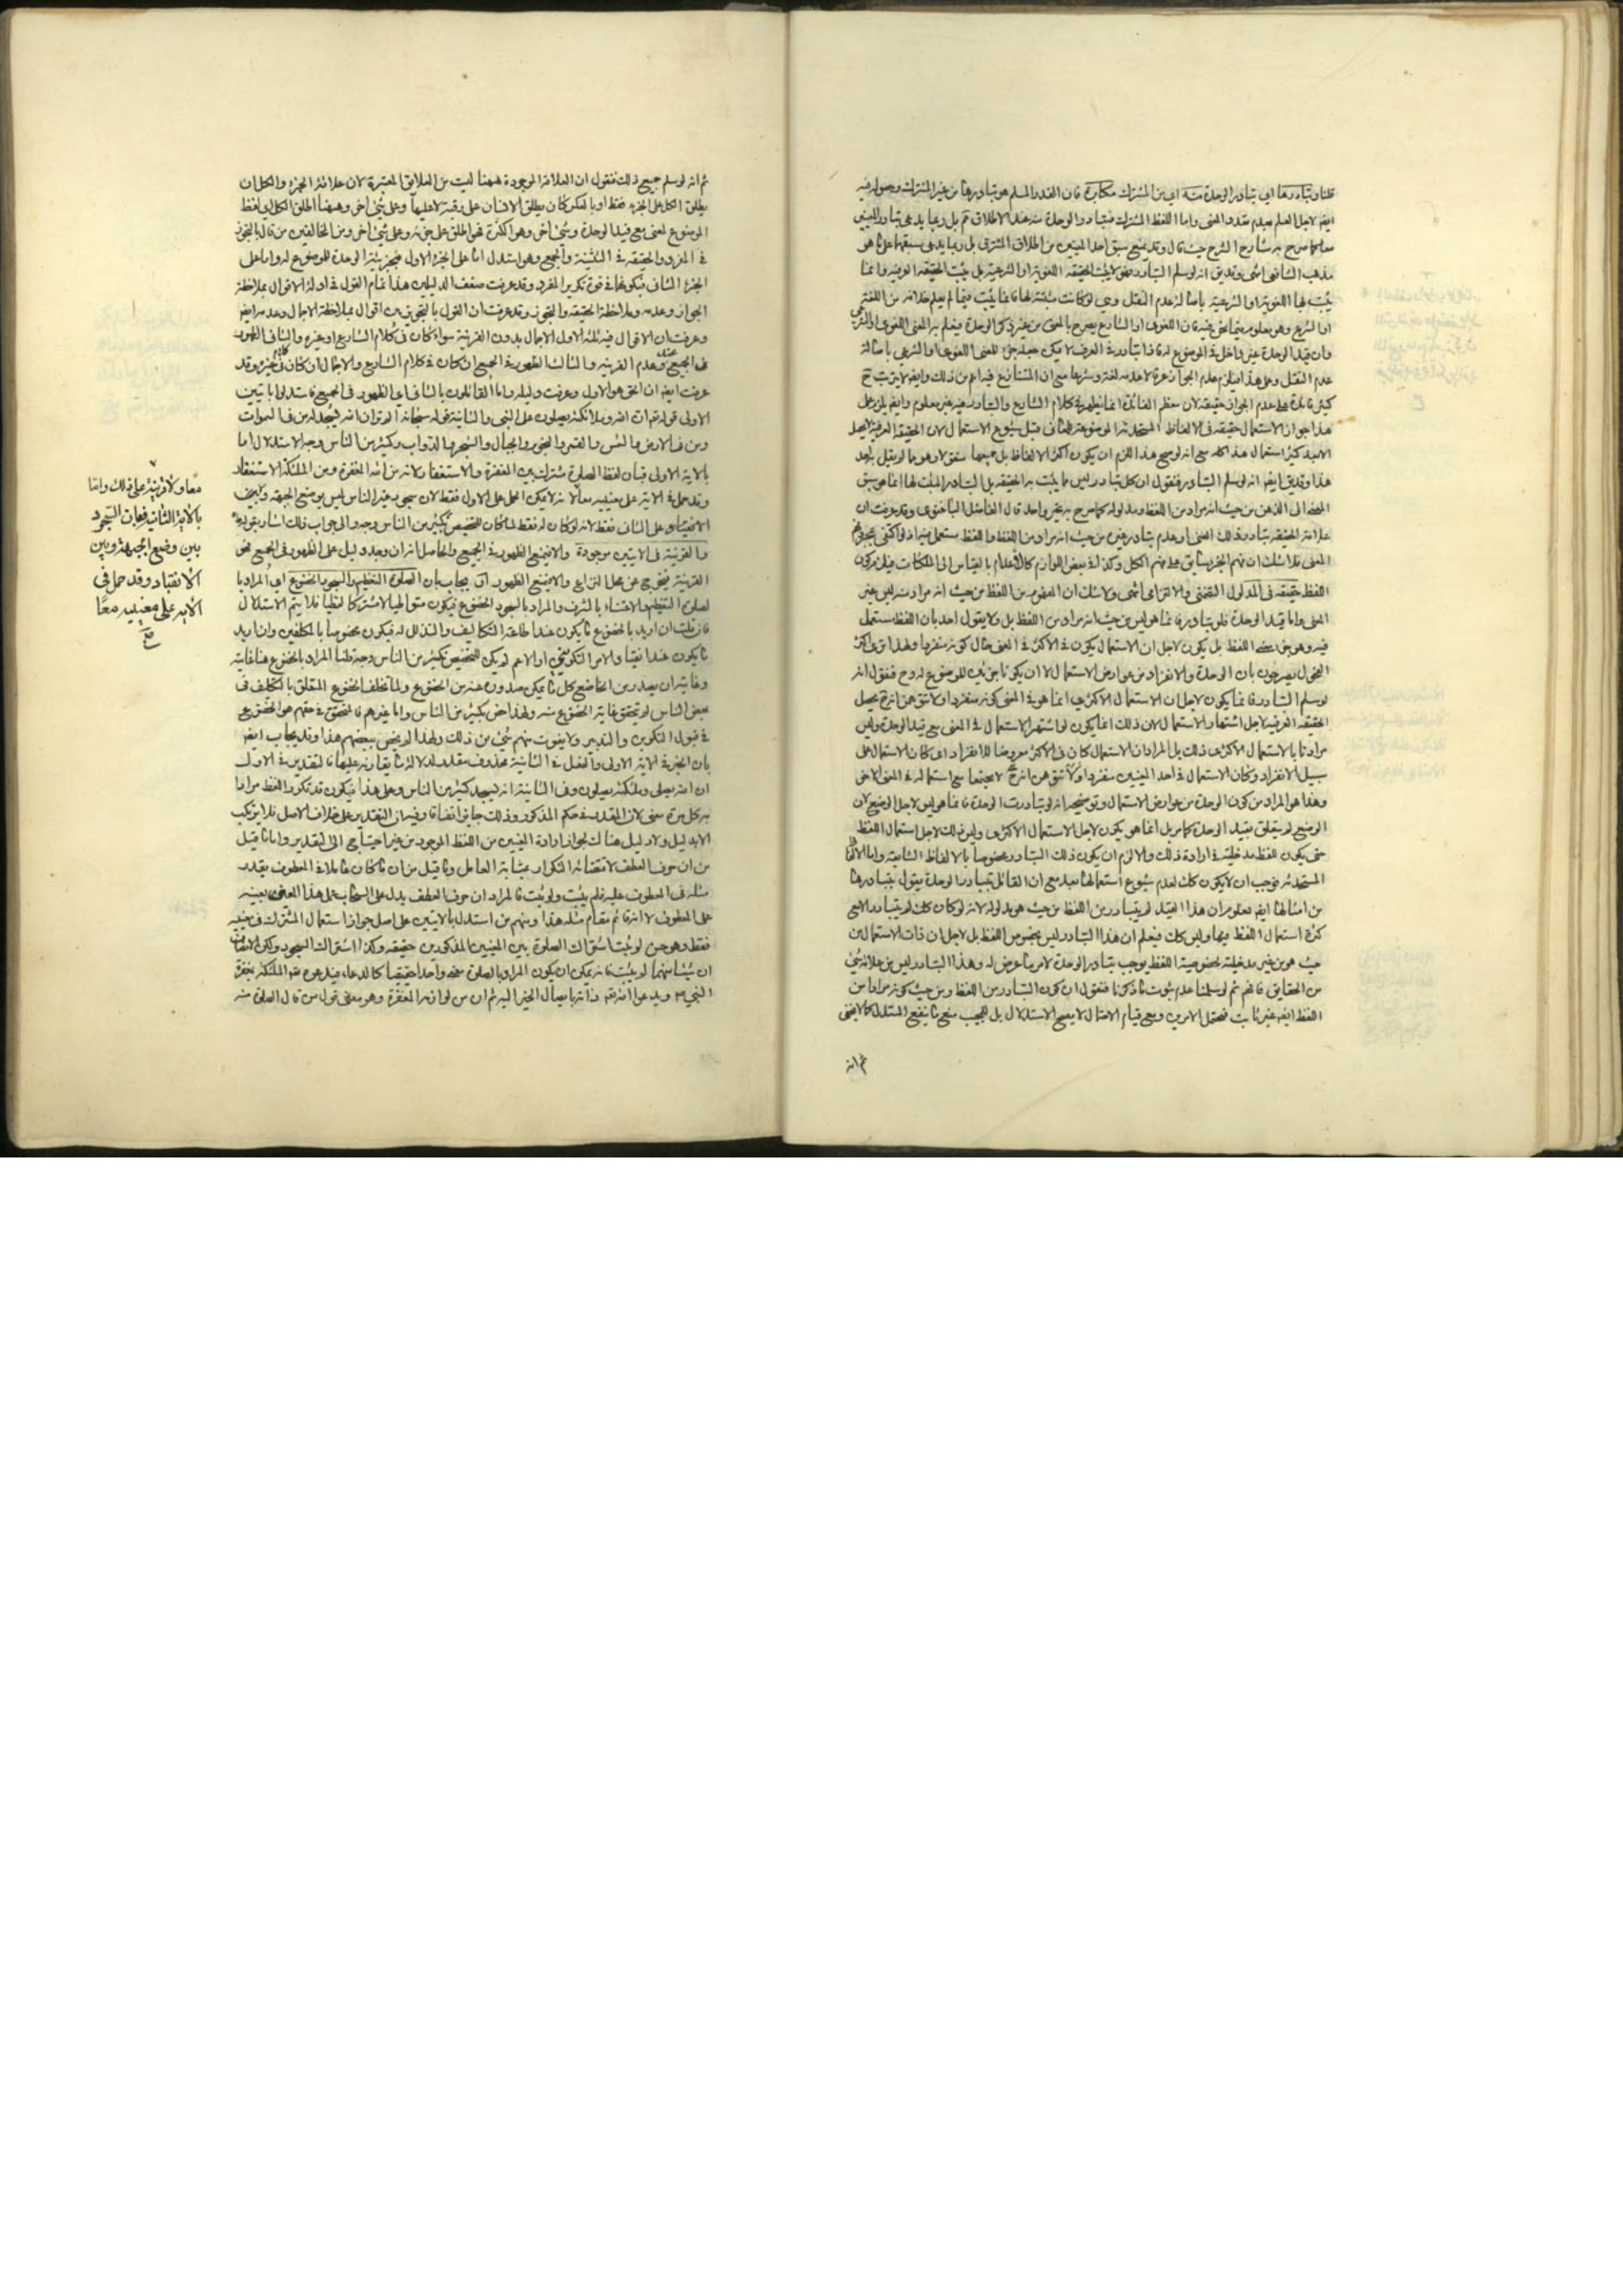 قلنا وتبادرها اي تبادر الوحدة منه اي من المشترك مكابرة فان القدر المسلم هو تبادرها من غير المشترك وحصوله فيه
ايضا لاجل العلم بعدم تعدد المعنى واما اللفظ المشترك فتبادر الوحدة منه عند الاطلاق ثم بل ربما يدعى تبادر المعنيين
معا كما صرح به شارح الشرح حيث قال وقد يمنع سبق احد المعنيين من اطلاق المشترك بل ربما يدعى سبقهما على ما هو
مذهب الشافعي انتهى وقد يق انه لو سلم التبادر فهو لا يثبت الحقيقة اللغوية او الشرعية بل يثبت الحقيقة العرفية وانما
يثبت بها اللغوية او الشرعية باصالة عدم النقل وهي لو كانت مثبتة لها فانما يثبت فيما لم يعلم خلافه من اللغة
او الشرع وهو معلوم فيما نحن فيه فان اللغوي او الشارع يصرح بالمعنى من غير ذكر الوحدة فيعلم به المعنى اللغوي او الشرعي
وان قيد الوحدة غير داخل في الموضوع له فاذا تبادر في العرف لا يمكن جعله جزء للمعنى اللغوي او الشرعي باصالة
عدم النقل وعلى هذا فيلزم عدم الجواز عرفا لا عدمه لغة وشرعا مع ان المتنازع فيه اعم من ذلك وايضا لا يترتب ح
كثير فائدة على عدم الجواز حقيقة لان معظم الفائدة انما يظهر في كلام الشارع والتبادر فيه غير معلوم وايضا يلزم على
هذا جواز الاستعمال حقيقة في الالفاظ المستحدثة الموضوعة للمعاني قبل شيوع الاستعمال لان الحقيقة العرفية لا يحصل
الا بعد كثير استعمال هذا كله مع انه لو صح هذا للزم ان يكون اكثر الالفاظ بل جميعها منقولا وهو مما لم يقل به احد
هذا وقد يق ايضا انه لو سلم التبادر فنقول ان كل تبادر ليس مما يثبت به الحقيقة بل التبادر المثبت لها انما هو سبق
المعنى الى الذهن من حيث انه مراد من اللفظ ومدلوله كما صرح به غير واحد قال الفاضل الباغنوي وقد عرفت ان
علامة الحقيقة تبادر ذلك المعنى او عدم تبادر غيره من حيث انه مراد من اللفظ واللفظ مستعمل فيه اذ لو اكتفى بمجرد فهم
المعنى فلا شك ان فهم الجزء سابق على فهم الكل وكذلك في بعض اللوازم كالاعدام بالقياس الى الملكات فيلزم كون
اللفظ حقيقة في المدلول التضمني والالتزامي انتهى ولا شك ان المفهوم من اللفظ من حيث انه مراد منه ليس غير
المعنى واما قيد الوحدة فلو تبادر فانما هو ليس من حيث انه مراد من اللفظ بل ولا يقول احد بان اللفظ مستعمل
فيه وهو جزء معنى اللفظ بل يكون لاجل ان الاستعمال يكون في الاكثر في المعنى حال كونه منفردا ولهذا ترى اكثر
الفحول يصرحون بان الوحدة والانفراد من عوارض الاستعمال لا ان يكونا جزئين للموضوع له وح فنقول انه
لو سلم التبادر فانما يكون لاجل ان الاستعمال الاكثري انما هو في المعنى كونه منفردا ولا تتوهمن انه ح يحصل
الحقيقة العرفية لاجل اشتهار الاستعمال لان ذلك انما يكون لو اشتهر الاستعمال في المعنى مع قيد الوحدة وليس
مرادنا بالاستعمال الاكثري ذلك بل المراد ان الاستعمال كان في الاكثر معروضا للانفراد اي كان الاستعمال على
سبيل الانفراد وكان الاستعمال في احد المعنيين منفردا لا مجتمعا مع استعماله في المعنى الاخر
وهذا هو المراد من كون الوحدة من عوارض الاستعمال وتوضيحه انه لو تبادرت الوحدة فانما هو ليس لاجل الوضع لان
الوضع لم يتعلق بقيد الوحدة كما مر بل انما هو يكون لاجل الاستعمال الاكثري وليس ذلك لاجل استعمال اللفظ
حتى يكون للفظ مدخلية في ارادة ذلك والا لزم ان يكون ذلك التبادر مخصوصا بالالفاظ الشايعة واما الالفاظ
المستحدثة فوجب ان لا يكون كك لعدم شيوع استعمالها بعد مع ان القائل بتبادر الوحدة يقول بتبادرها
من امثالها ايضا فمعلوم ان هذا القيد لم يتبادر من اللفظ من حيث هو مدلوله لانه لو كان كك لم يتبادر الا مع
كثرة استعمال اللفظ فيها وليس كك فيعلم ان هذا التبادر ليس بخصوص اللفظ بل لاجل ان ذات الاستعمال من
حيث هو من غير مدخلية لخصوصية اللفظ يوجب تبادر الوحدة لامر ما عرض له وهذا التبادر ليس من علائم شئ
من الحقايق فافهم ثم لو سلمنا عدم ثبوت ما ذكرنا فنقول ان كون التبادر من اللفظ ومن حيث كونه مرادا من
اللفظ ايضا غير ثابت فيحتمل الامرين ومع قيام الاحتمال لا يصح الاستدلال بل للمجيب منع ما ينفع المستدل كما لا يخفى
ثم انه
ثم انه لو سلم جميع ذلك فنقول ان العلاقة الموجودة ههنا ليست من العلايق المعتبرة لان علاقة الجزء والكل ان
يطلق الكل على الجزء فقط او بالعكس كان يطلق الانسان على رقبته لا عليها وعلى شئ اخر وههنا اطلق الكل اي لفظ
الموضوع لمعنى مع قيد الوحدة وشئ اخر وهو الكثرة فهو اطلق على جزئه وعلى شئ اخر ومن المخالفين من قال بالتجوز
في المفرد والحقيقة في التثنية والجمع وهو استدل اما على الجزء الاول فبجزئية الوحدة للموضوع له واما على
الجزء الثاني فبكونهما في قوة تكرير المفرد وقد عرفت ضعف الدليلين هذا تمام القول في ادلة الاقوال بملاحظة
الجواز وعدمه وملاحظة الحقيقة والتجوز وقد عرفت ان القول بالتجويز من اقوال بملاحظة الاجمال وعدمه ايضا
وعرفت ان الاقوال فيه ثلثة الاول الاجمال بدون القرينة سواء كان في كلام الشارع او غيره والثاني الظهور
في الجميع عند عدم القرينة والثالث الظهور في الجميع ان كان في كلام الشارع والاجمال ان كان في كلام غيره وقد
عرفت ايضا ان الحق هو الاول وعرفت دليله واما القائلون بالثاني اي الظهور في الجميع فاستدلوا بايتين
الاولى قوله تع ان الله وملائكته يصلون على النبي والثانية قوله سبحانه الم تر ان الله يسجد له من في السموات
ومن في الارض والشمس والقمر والنجوم والجبال والشجر والدواب وكثير من الناس وجه الاستدلال اما
بالاية الاولى فبان لفظ الصلوة مشترك بين المغفرة والاستغفار لانه من الله المغفرة ومن الملئكة الاستغفار
وقد حمل في الاية على معنييه معا لانه لا يمكن الحمل على الاول فقط لان سجود غير الناس ليس بوضع الجبهة ولا بمعنى
الانقياد وعلى الثاني فقط لانه لو كان له فقط لما كان للتخصيص بكثير من الناس وجه والى جواب ذلك اشار بقوله
والقرينة في الايتين موجودة والا يمنع الظهور في الجميع والحاصل انه ان وجد دليل على الظهور في الجميع فهو
القرينة فيخرج عن محل النزاع والا يمنع الظهور او يجاب بان الصلوة التعظيم والسجود الخضوع اي المراد با
لصلوة التعظيم والاعتناء بالشرف والمراد بالسجود الخضوع فيكون متواطيا لا مشتركا لفظيا فلا يتم الاستدلال
فان قلت ان اريد بالخضوع ما يكون عند اطاعة التكاليف والتذلل له فيكون مخصوصا بالمكلفين وان اريد
ما يكون عند انقياد الامر التكويني او الاعم لم يكن للتخصيص بكثير من الناس وجه قلنا المراد بالخضوع هنا غايته
وغايته ان يصدر من الخاضع كل ما يمكن صدوره عنه من الخضوع ولما تخلف الخضوع المتعلق بالتكليف في
بعض الناس لم يتحقق غاية الخضوع منه ولهذا خص بكثير من الناس واما غيرهم فالمتحقق في حقهم هو الخضوع
في قبول التكوين والتدبير ولا يفوت منهم شئ من ذلك ولهذا لم يخص ببعضهم هذا وقد يجاب ايضا
بان الخبر في الاية الاولى والفعل في الثانية محذوف مقدر لدلالة ما يقارنه عليها فالتقدير في الاولى
ان الله يصلي وملئكته يصلون وفي الثانية انه يسجد كثير من الناس وعلى هذا فيكون قد تكرر اللفظ مرادا
به كل مرة معنى لان المقدر في حكم المذكور وذلك جايز اتفاقا وفيه ان التقدير على خلاف الاصل فلا يرتكب
الا بدليل ولا دليل هنالك لجواز ارادة المعنيين من اللفظ الموجود من غير احتياج الى التقدير واما ما قيل
من ان حرف العطف لاقتضائه التكرار بمثابة العامل وما قيل من ان ما كان عاملا في المعطوف يقدر
مثله في المعطوف عليه فلم يثبت ولو ثبت فالمراد ان حرف العطف يدل على انسحاب عمل هذا العامل بعينه
على المعطوف لا انه قائم مقام مثله هذا ومنهم من استدل بالايتين على اصل جواز استعمال المشترك في معنييه
فقط وهو حسن لو ثبت اشتراك الصلوة بين المعنيين المذكورين حقيقة وكذا اشتراك السجود ولكن الانصاف
ان شيئا منهما لم يثبت فانه يمكن ان يكون المراد بالصلوة معنى واحدا حقيقيا كالدعاء فيدعوه تع الملئكة بمغفرة
النبي ص ويدعو الله تع ذاته بايصال الخير اليه ثم ان من لوازمه المغفرة وهو معنى قول من قال الصلوة منه
معا ولا قرينة على ذلك واما
بالاية الثانية فبان السجود
بين وضع الجبهة وبين
الانقياد وقد حمل في
الاية على معنييه معا
صح